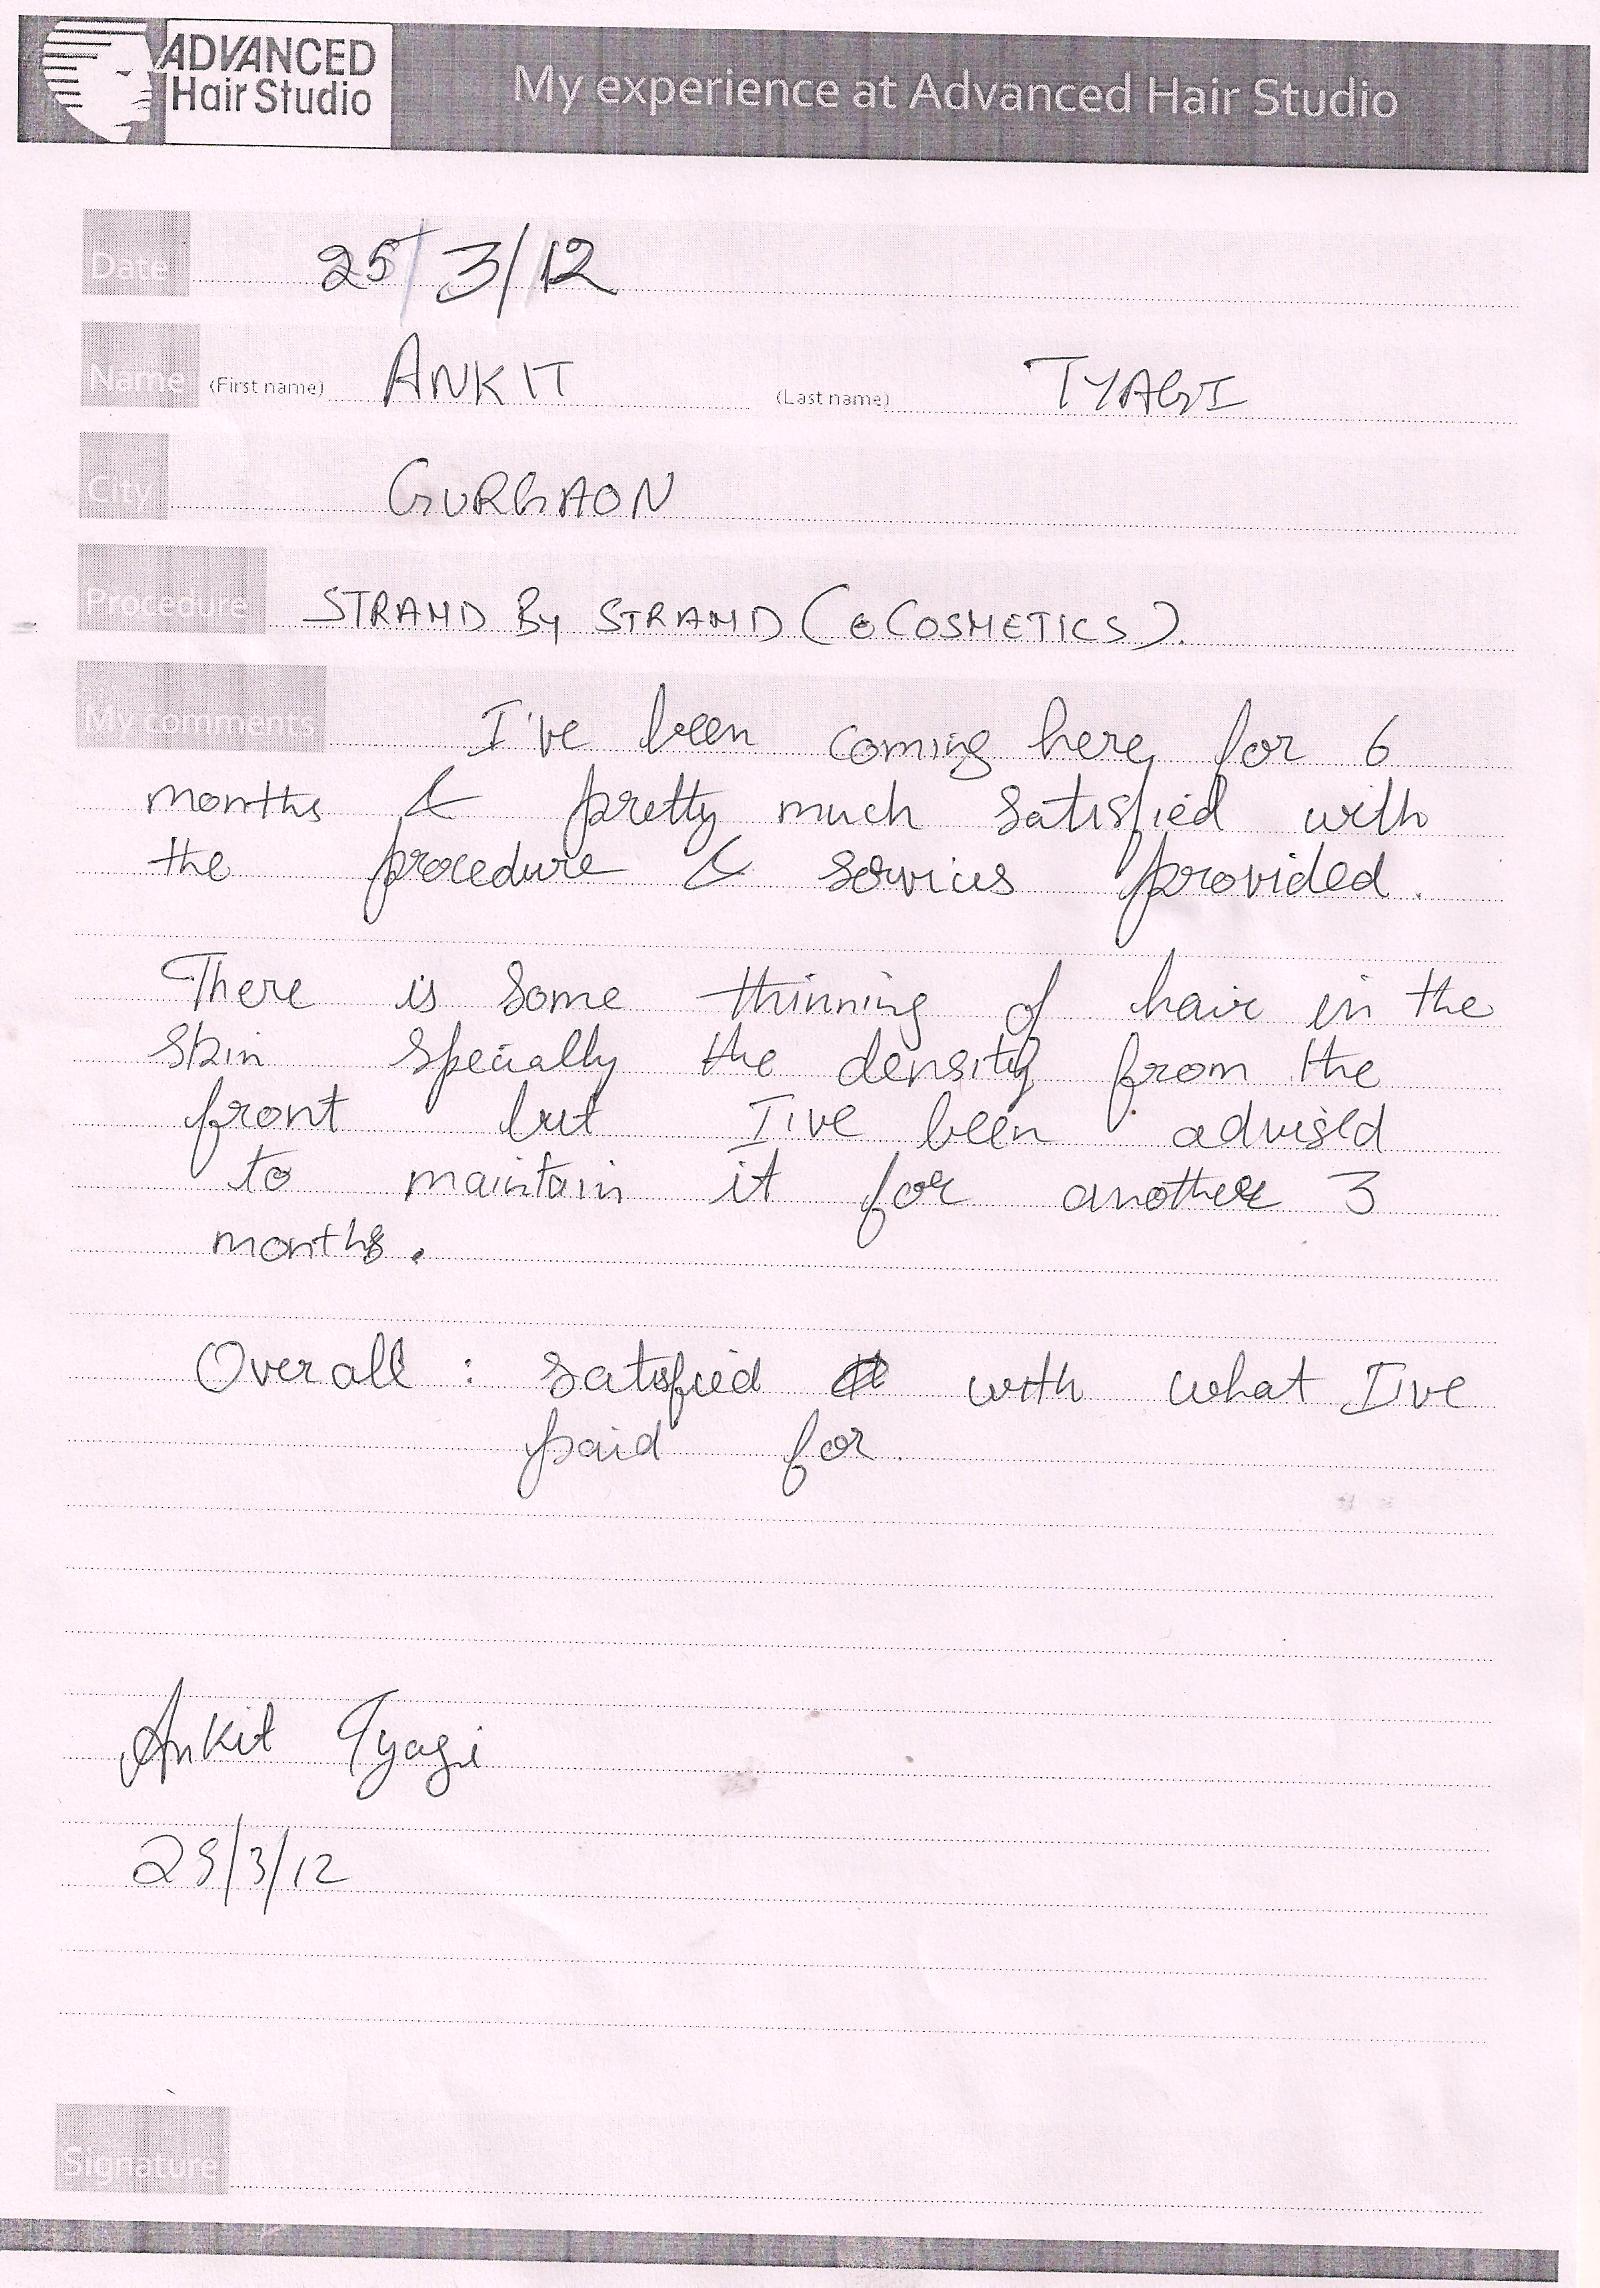 ADVANCED
Hair Studio
My experience at Advanced Hair Studio
Date 25/3/12
Name (First name) ANKIT (Last name) TYAGI
City GURGAON
Procedure STRAND BY STRAND (COSMETICS).
My comments I've been coming here for 6
months & pretty much satisfied with
the procedure & services provided.
There is some thinning of hair in the
skin specially the density from the
front but I've been advised
to maintain it for another 3
months.
Overall : satisfied with what I've
paid for.
Ankit Tyagi
25/3/12
Signature